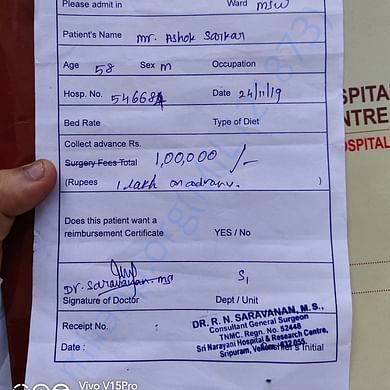 Please admit in Ward MSW
Patient's Name Mr. Ashok Sarkar
Age 58 Sex M Occupation
Hosp. No. 546684 Date 24/11/19
Bed Rate Type of Diet
Collect advance Rs.
Surgery Fees Total 1,00,000/-
(Rupees 1 lakh on advanu. )
Does this patient want a
reimbursement Certificate YES / No
Dr. Saravanan. MS S1
Signature of Doctor Dept / Unit
DR. R. N. SARAVANAN, M.S.,
Consultant General Surgeon
TNMC. Regn. No. 52448
Sri Narayani Hospital & Research Centre,
Sripuram, Vellore - 632 055.
Receipt No. :
Date : Initial
SPITA
NTRE
HOSPITAL
Vivo V15Pro